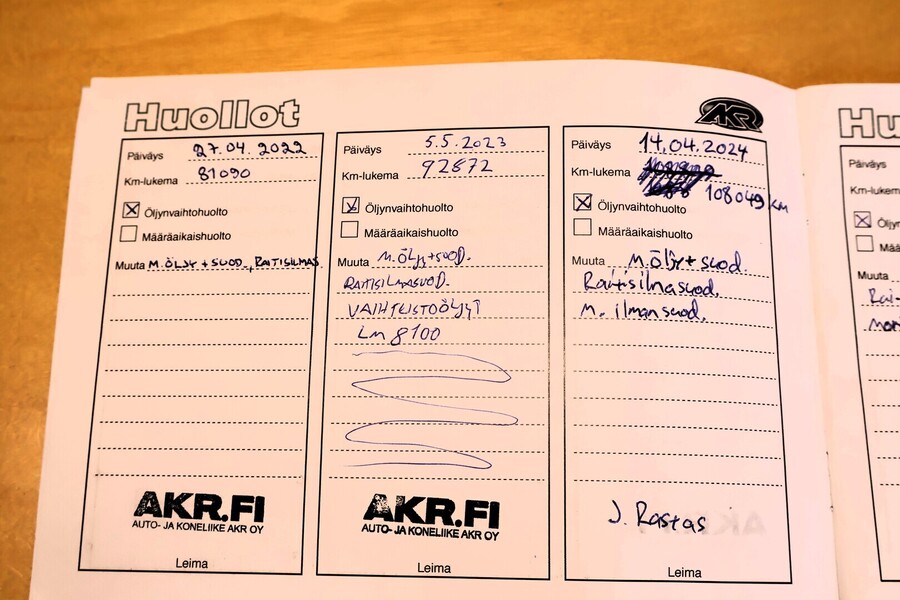 Huollot
AKR
Päiväys 27.04.2022
Km-lukema 81090
Öljynvaihtohuolto
Määräaikaishuolto
Muuta M.ÖLJY + SUOD., RAITISILMAS.
AKR.FI
AUTO- JA KONELIIKE AKR OY
Leima
Päiväys 5.5.2023
Km-lukema 92872
Öljynvaihtohuolto
Määräaikaishuolto
Muuta M.Öljy+suoD.
RAITISILMASUOD.
VAIHTEISTOÖLJYT
LM 8100
AKR.FI
AUTO- JA KONELIIKE AKR OY
Leima
Päiväys 14.04.2024
Km-lukema
108049 km
Öljynvaihtohuolto
Määräaikaishuolto
Muuta M.Öljy + suod.
Raitisilmasuod.
M. ilmansuod.
J. Rastas
Leima
Hu
Päiväys
Km-lukema
Öljyn
Mää
Muuta
Rai